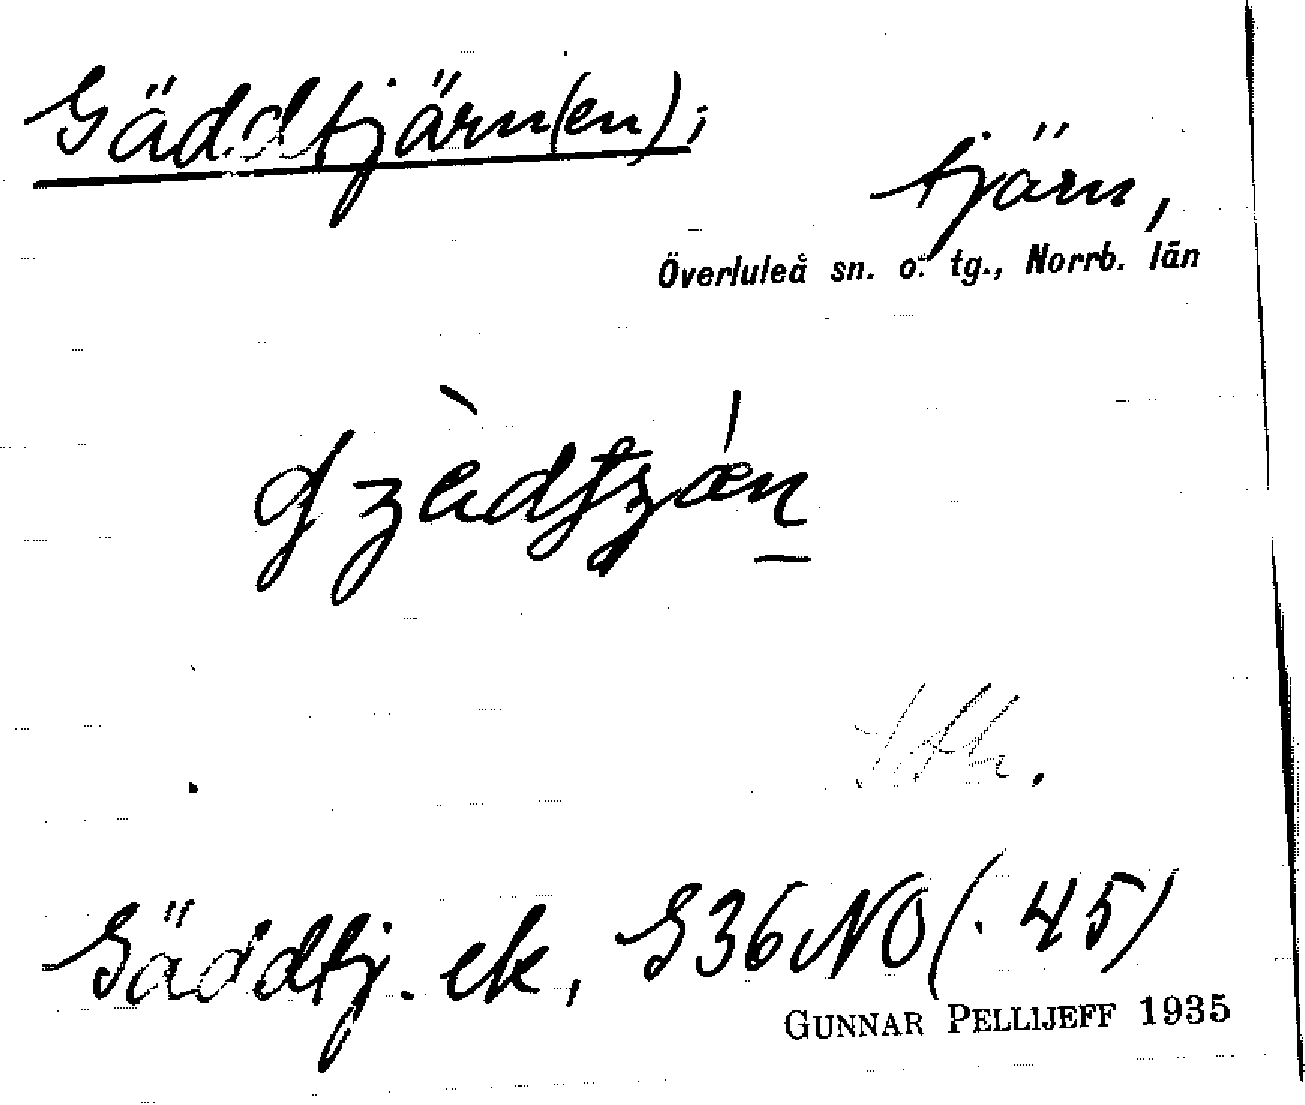 Gäddtjärn(en);
tjärn,
Överluleå sn. o. tg., Norrb. län
Gäddtj. ek, G36NO(. 45)
GUNNAR PELLIJEFF 1935